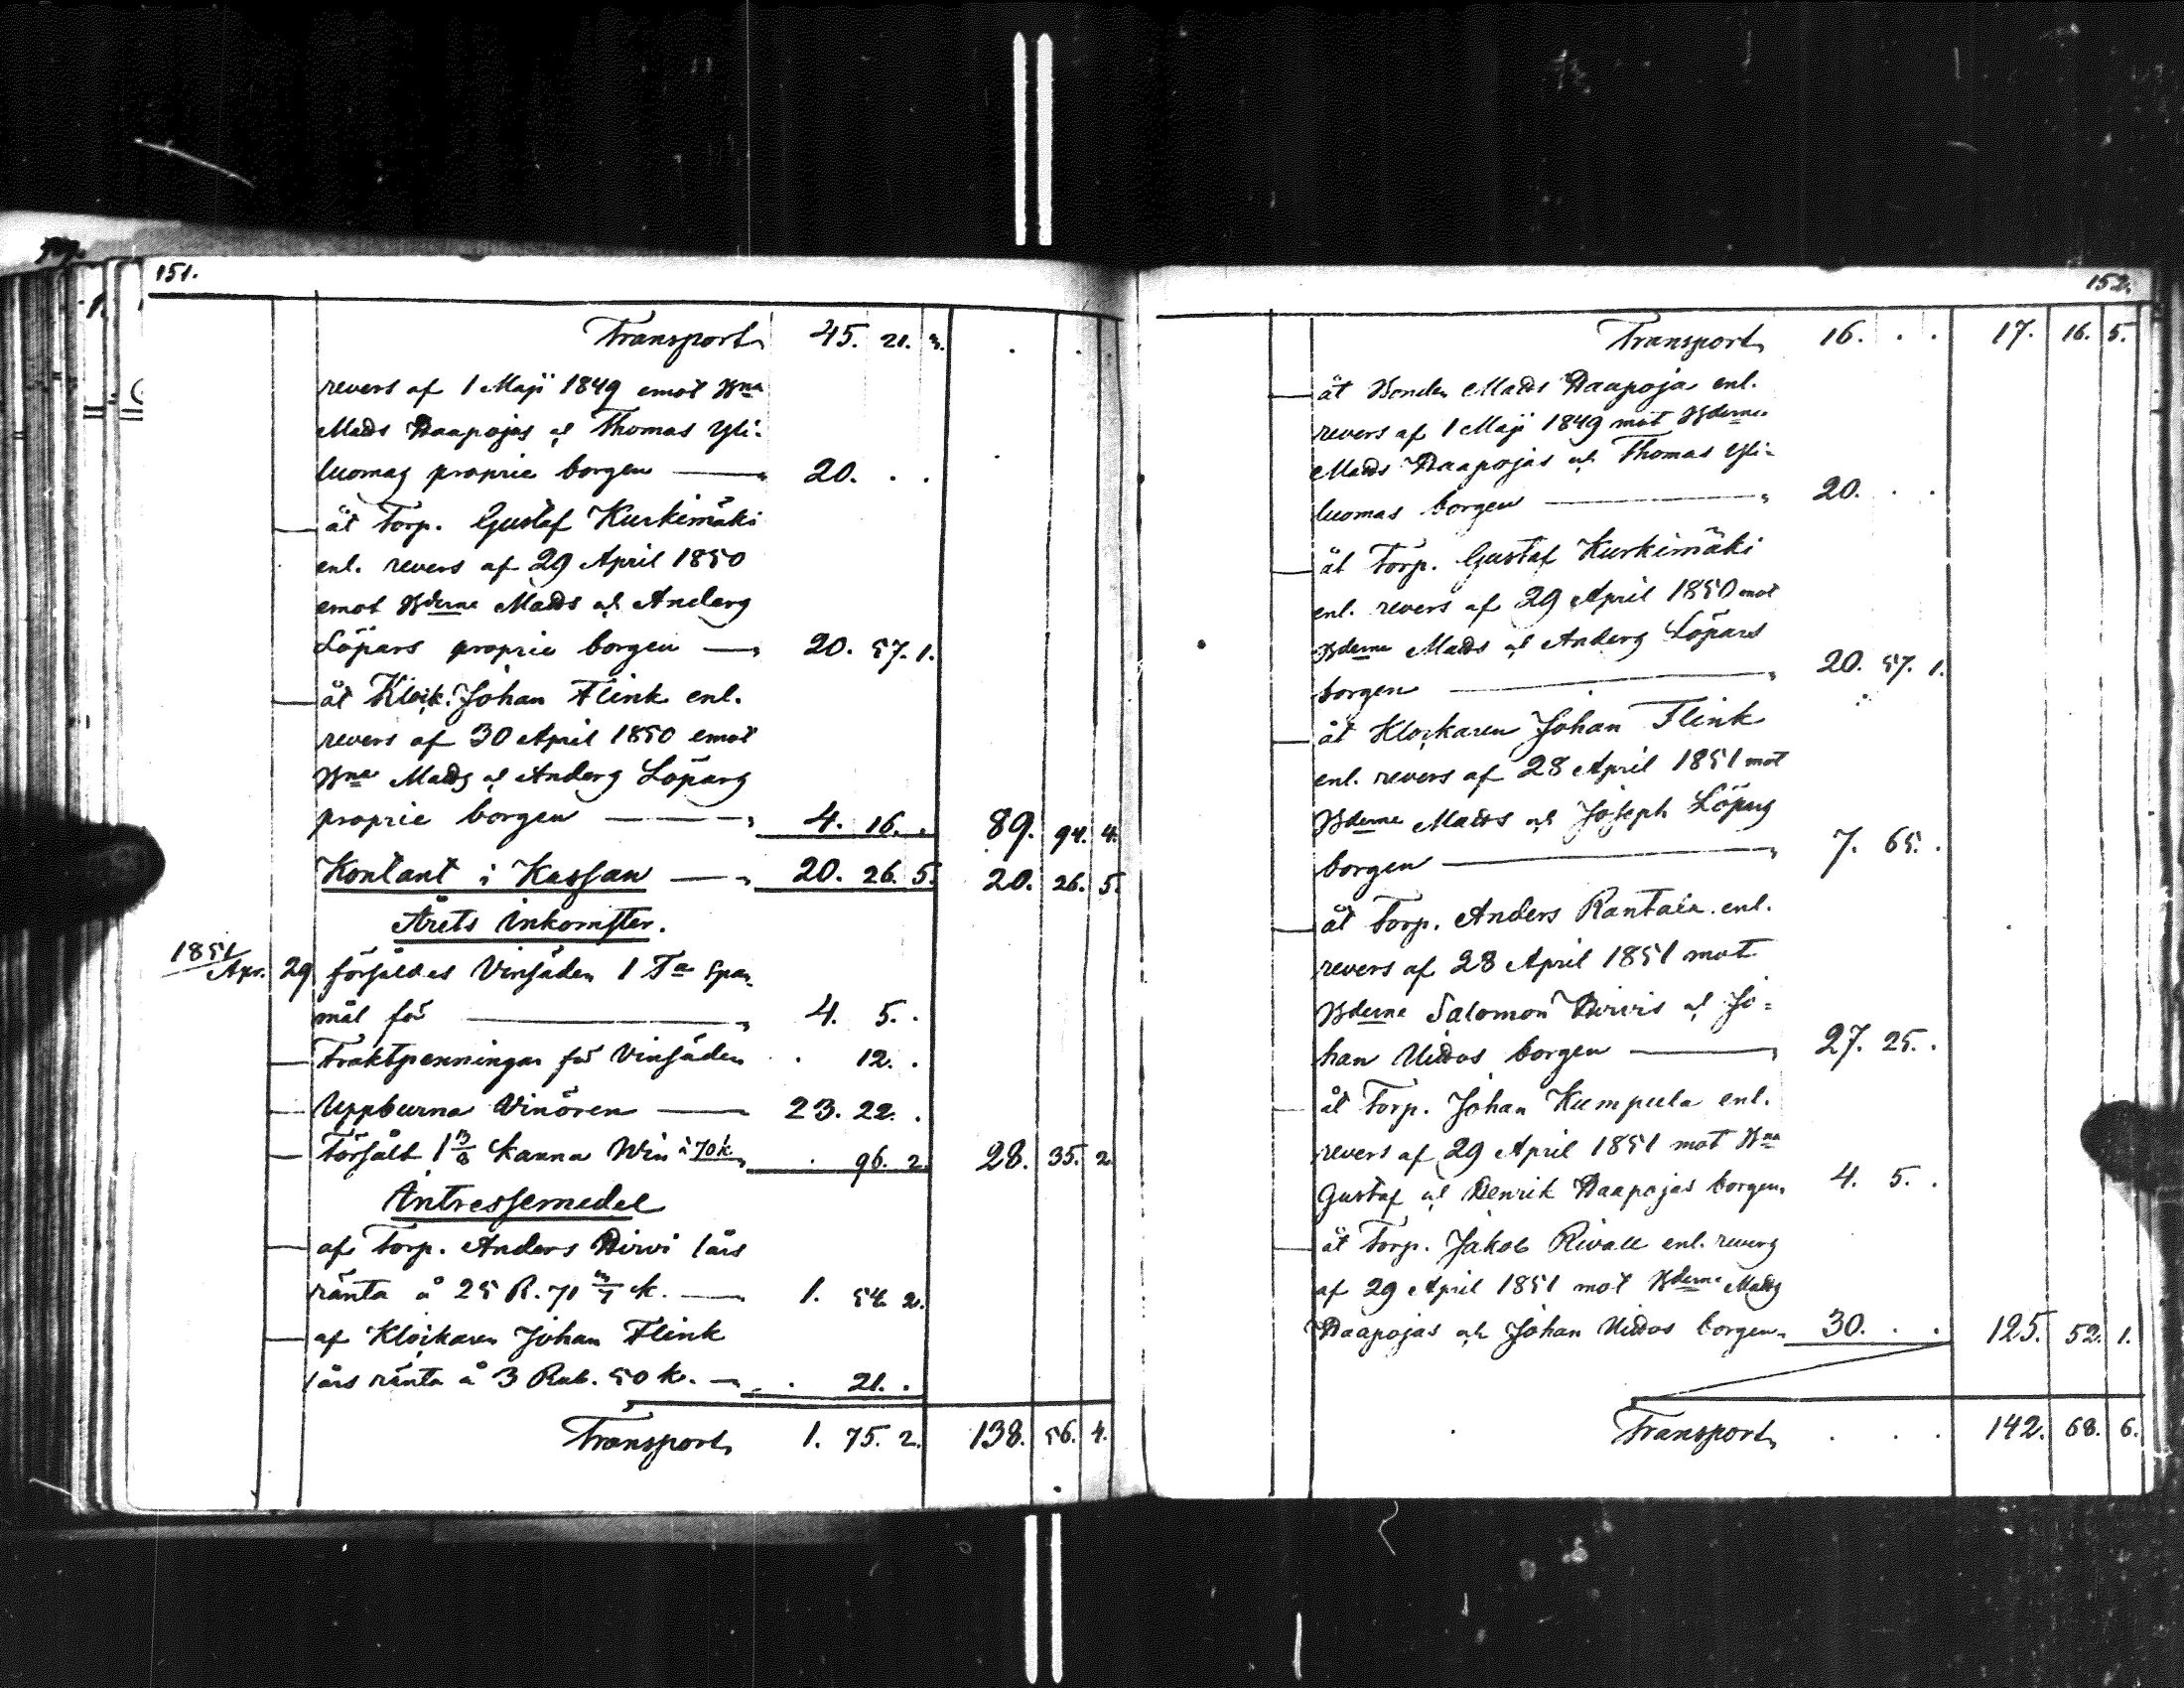 151.
Transport 45. 21. 3.
revers af 1 Maji 1849 emot Bna
Mads Haapojas och Thomas Yli-
luomas proprie borgen — 20. . .
— åt Torp. Gustaf Kurkimäki
enl. revers af 29 April 1850
emot Bderne Mads och Anders
Löpars proprie borgen — 20. 57. 1.
— åt Klock. Johan Flink enl.
revers af 30 April 1850 emot
Bna Mads och Anders Löpars
proprie borgen — 4. 16. . 89. 94. 4.
Kontant i Kassan — 20. 26. 5. 20. 26. 5.
Årets Inkomster.
1851 Apr. 29 försåldes Vinsäden 1 Ta Span-
mål för — 4. 5. .
— Fraktpenningar för Vinsäden . 12. .
— Uppburna Vinören — 23. 22. .
— Försåldt 1 3/8 kanna Win à 70 k. . 96. 2. 28. 35. 2.
Intressemedel
— af Torp. Anders Hirvi 1 års
ränta å 25 R. 71 3/7 k. — 1. 54. 2.
— af Klockaren Johan Flink
1 års ränta å 3 Rub. 50 k. — . 21. .
Transport 1. 75. 2. 138. 56. 4.
152.
Transport 16. . . 17. 16. 5.
— åt Bonden Mads Haapoja enl.
revers af 1 Maji 1849 mot Bderne
Mads Haapojas och Thomas Yli-
luomas borgen — 20. . .
— åt Torp. Gustaf Kurkimäki
enl. revers af 29 April 1850 mot
Bderne Mads och Anders Löpars
borgen — 20. 57. 1.
— åt Klockaren Johan Flink
enl. revers af 28 April 1851 mot
Bderne Mads och Joseph Löpars
borgen — 7. 65. .
— åt Torp. Anders Rantala enl.
revers af 28 April 1851 mot
Bderne Salomon Hirvis och Jo-
han Uidos borgen — 27. 25. .
— åt Torp. Johan Kumpula enl.
revers af 29 April 1851 mot Bna
Gustaf och Henrik Haapojas borgen 4. 5. .
— åt Torp. Jakob Rivall enl. revers
af 29 April 1851 mot Bderne Mads
Haapojas och Johan Uidos borgen 30. . . 125. 52. 1.
Transport . . . 142. 68. 6.